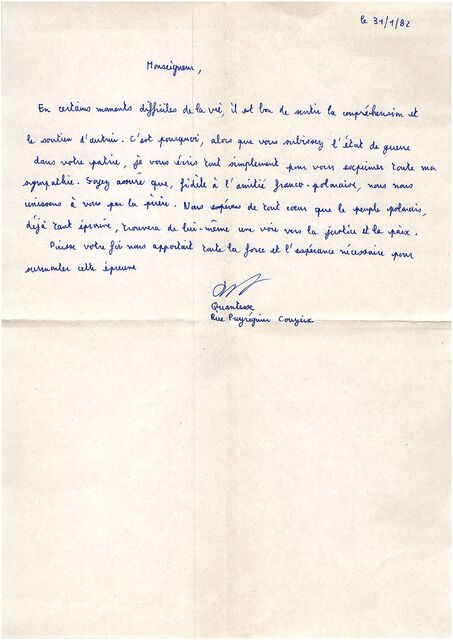 le 31/1/82
Monseigneur,
En certains moments difficiles de la vie, il est bon de sentir la compréhension et
le soutien d'autrui. C'est pourquoi, alors que vous subissez l'état de guerre
dans votre patrie, je vous écris tout simplement pour vous exprimer toute ma
sympathie. Soyez assuré que, fidèle à l'amitié franco-polonaise, nous nous
unissons à vous par la prière. Nous espérons de tout cœur que le peuple polonais,
déjà tant éprouvé, trouvera de lui-même une voie vers la justice et la paix.
Puisse votre foi nous apportait toute la force et l'espérance nécessaire pour
surmonter cette épreuve
Rue Puyrégnier Couzeix